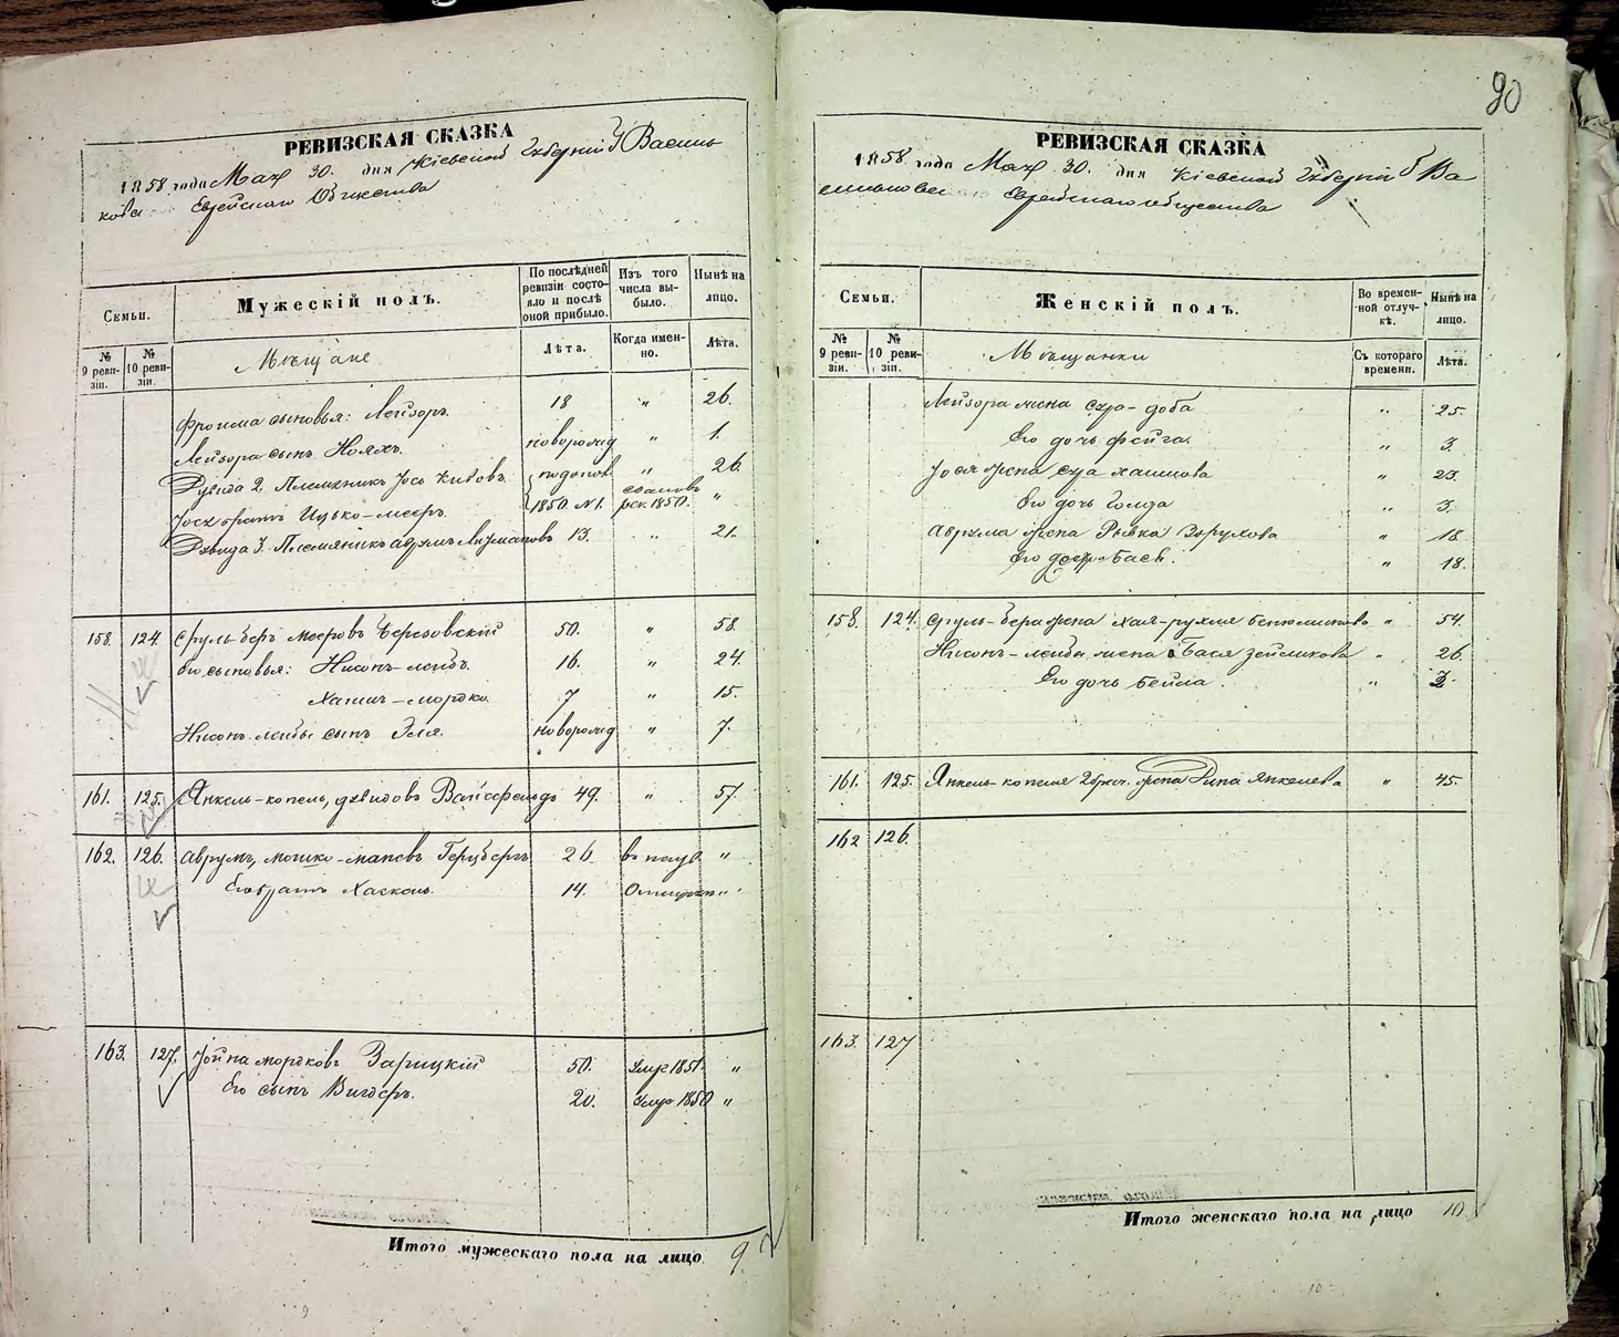 90
РЕВИЗСКАЯ СКАЗКА
1858 года Мая 30. дня Кіевской Губерніи Г Василь
кова Еврейскаго Общества
Семьи.
Мужескій полъ.
По послѣдней ревизіи состояло и послѣ оной прибыло.
Изъ того числа выбыло.
Нынѣ на лицо.
№ 9 ревизіи.
№ 10 ревизіи.
Мѣщане
Лѣта.
Когда именно.
Лѣта.
Фроима сыновья: Лейзоръ. 18 " 26.
Лейзора сынъ Нояхъ. новорожд " 1.
Дувида 2. Племянникъ Іось " 26
Іося братъ Ицько-мееръ. 1850. №1. рек. 1850. "
Дувида 3. Племянникъ аврумъ 13. " 21.
158. 124. Сруль-беръ мееровъ Березовскій 50. " 58.
Его сыновья: Нисонъ-лейбъ. 16. " 24.
Хаимъ-мордко. 7 " 15.
Нисонъ-лейбы сынъ Эля. новорожд " 7.
161. 125. Янкель-копель, дувидовъ Вайсфельдъ 49. " 57.
162. 126. Аврумъ, мошко-маневъ Герцбергъ 26. "
Его братъ Хаскель. 14. "
163. 127. Іойна мордковъ Зарицкій 50. Умре 1851. "
Его сынъ Вигдоръ. 20. Умре 1850 "
Итого мужескаго пола на лицо 9
РЕВИЗСКАЯ СКАЗКА
1858. года Мая 30. дня Кіевской Губерніи Г Ва
сильковск Еврейскаго общества
Семьи.
Женскій полъ.
Во временной отлучкѣ.
Нынѣ на лицо.
№ 9 ревизіи.
№ 10 ревизіи.
Мѣщанки
Съ котораго времени.
Лѣта.
Лейзора жена Сура-доба " 25.
Его дочь фейга. " 3.
Іося жена Сура хаимова " 23.
Его дочь Голда " 3.
Аврума жена Рывка " 18
Его " 18.
158. 124. Сруль-бера жена хая-рухля " 54.
Нисонъ-лейбы жена Бася зейликова " 26.
Его дочь Бейла. "
161. 125. Янкель-копеля 2 жена Янкелева " 45.
162 126.
163. 127
Итого женскаго пола на лицо 10.